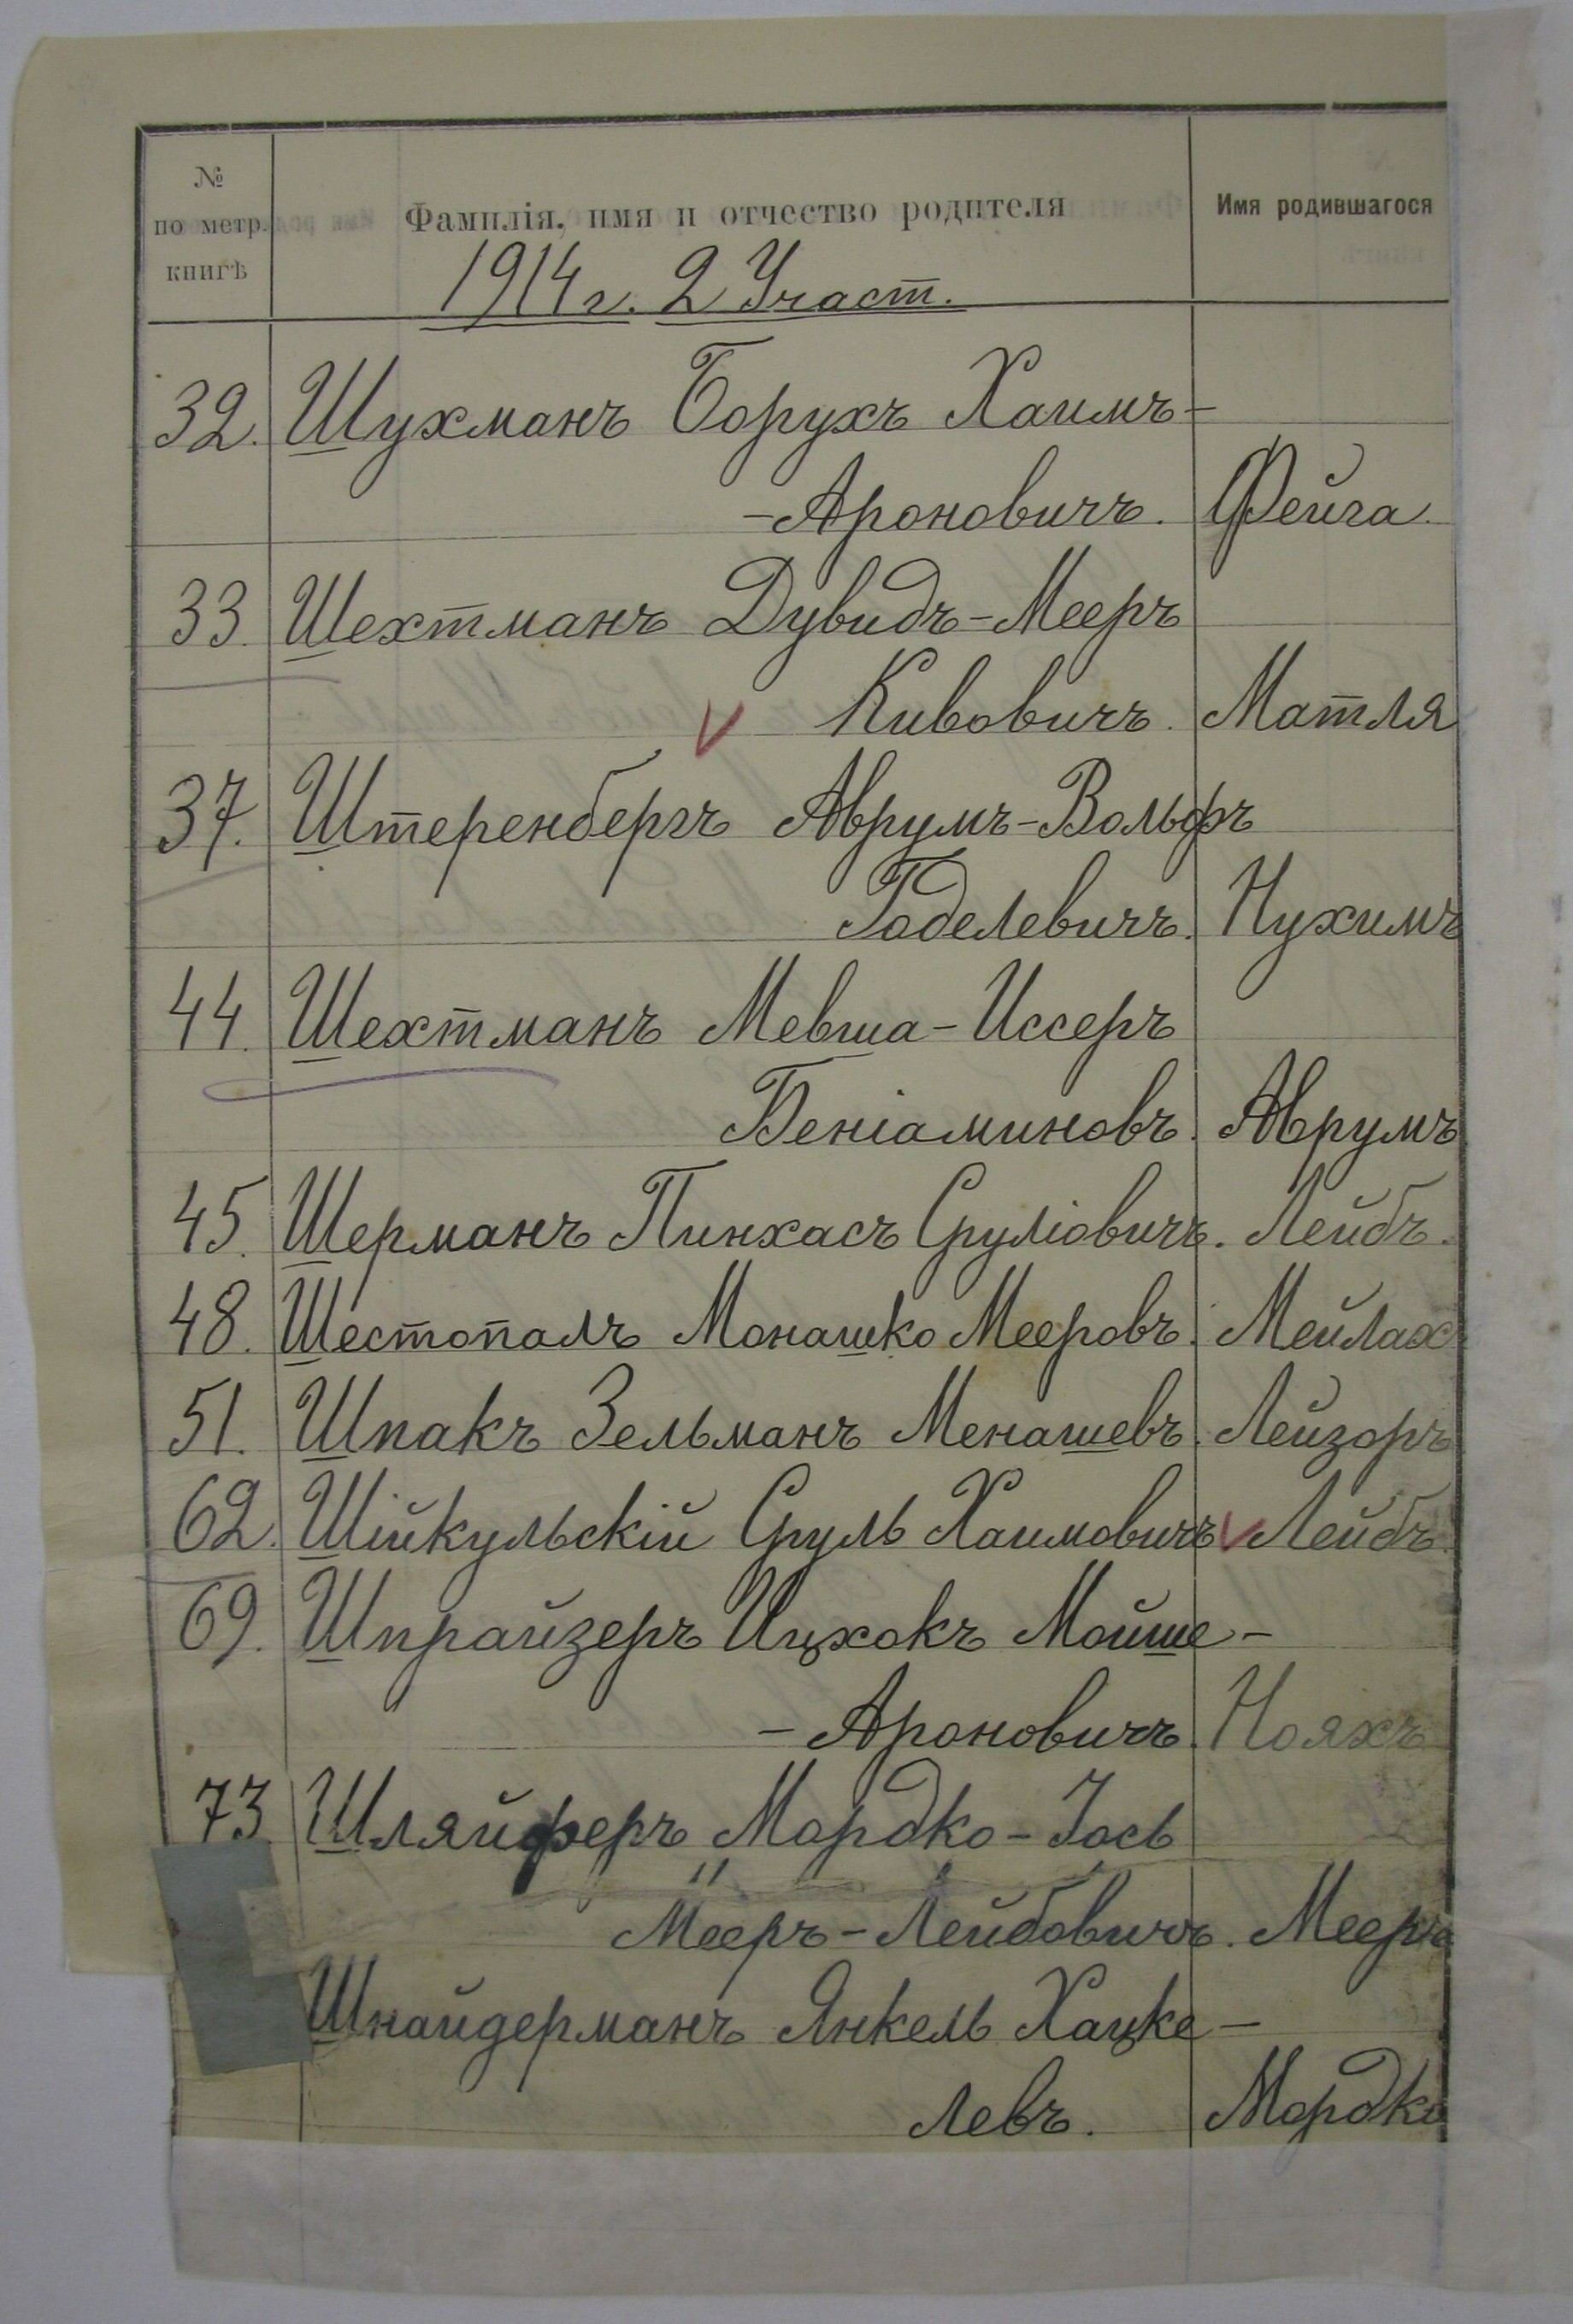 №
по метр.
книгѣ
Фамилія, имя и отчество родителя
Имя родившагося
1914 г. 2 Участ.
32. Шухманъ Борухъ Хаимъ-
-Ароновичъ. Фейга.
33. Шехтманъ Дувидъ-Мееръ
Кивовичъ. Матля
37. Штеренбергъ Аврумъ-Вольфъ
Годелевичъ. Нухимъ
44. Шехтманъ Мевша-Иссеръ
Беніаминовъ. Аврумъ
45. Шерманъ Пинхасъ Сруліовичъ. Лейбъ.
48. Шестопалъ Монашко Мееровъ. Мейлах
51. Шпакъ Зельманъ Менашевъ. Лейзоръ
62. Шійкульскій Сруль Хаимовичъ Лейбъ
69. Шпрайзеръ Ицхокъ Мойше-
-Ароновичъ. Нояхъ
73 Шляйферъ Мордко-Іось
Мееръ-Лейбовичъ. Мееръ
Шнайдерманъ Янкель Хацке-
левъ. Мордко